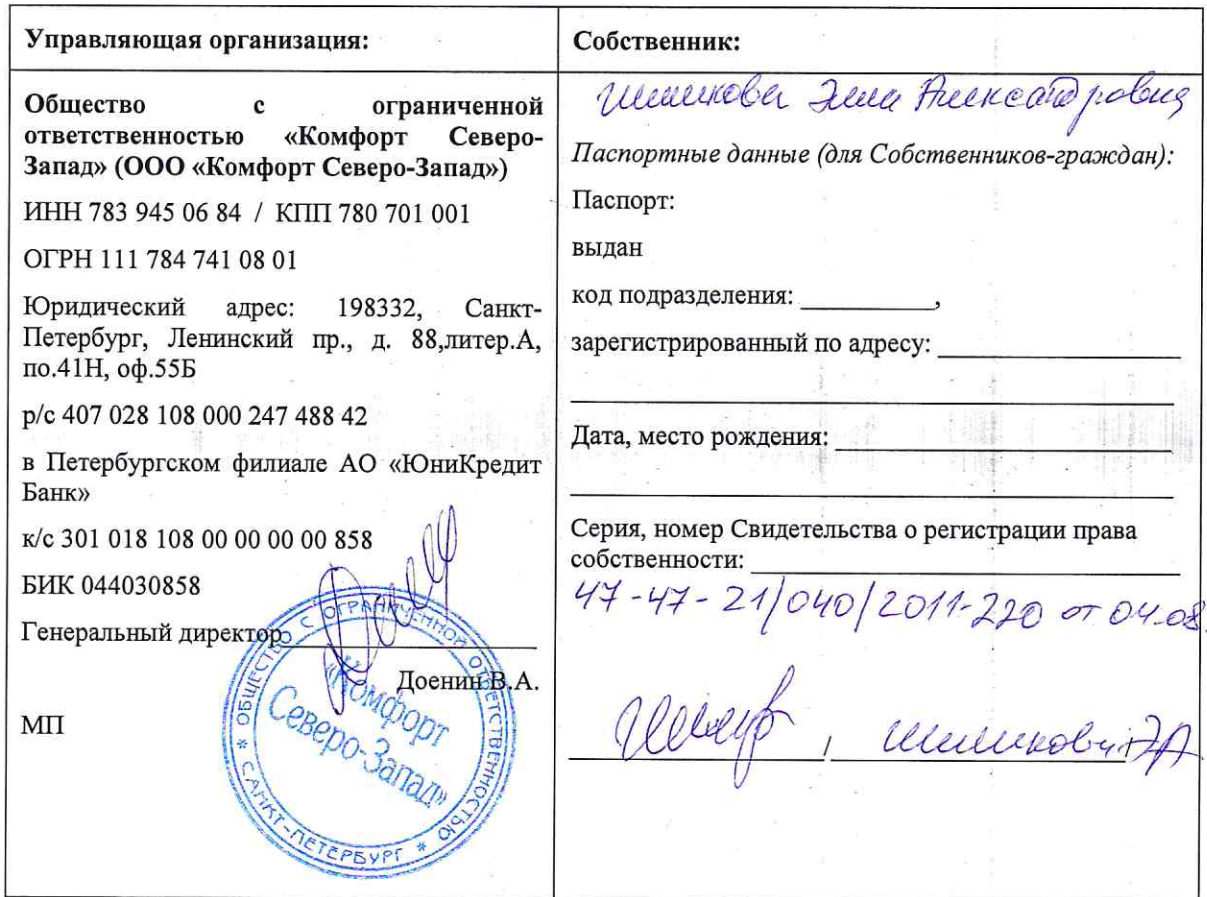 Управляющая организация:
Общество с ограниченной
ответственностью «Комфорт Северо-
Запад» (ООО «Комфорт Северо-Запад»)
ИНН 783 945 06 84 / КПП 780 701 001
ОГРН 111 784 741 08 01
Юридический адрес: 198332, Санкт-
Петербург, Ленинский пр., д. 88,литер.А,
по.41Н, оф.55Б
р/с 407 028 108 000 247 488 42
в Петербургском филиале АО «ЮниКредит
Банк»
к/с 301 018 108 00 00 00 00 858
БИК 044030858
Генеральный директор
Доенин В.А.
МП
* ОБЩЕСТВО С ОГРАНИЧЕННОЙ ОТВЕТСТВЕННОСТЬЮ * САНКТ-ПЕТЕРБУРГ
«Комфорт
Северо-Запад»
Собственник:
Александровна
Паспортные данные (для Собственников-граждан):
Паспорт:
выдан
код подразделения: __________,
зарегистрированный по адресу:
Дата, место рождения:
Серия, номер Свидетельства о регистрации права
собственности:
47-47-21/040/2011-220 от 04.08.
/